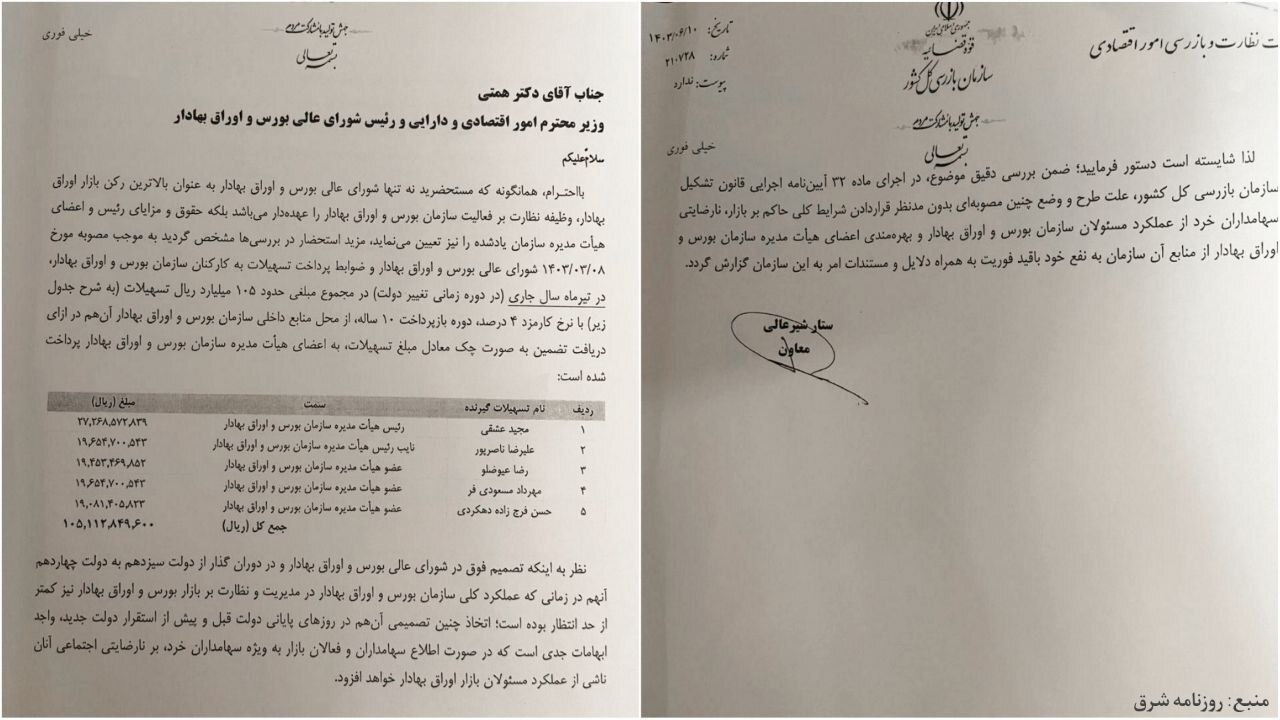 جهش تولید با مشارکت مردم
خیلی فوری
بسمه تعالی
جناب آقای دکتر همتی
وزیر محترم امور اقتصادی و دارایی و رئیس شورای عالی بورس و اوراق بهادار
سلام علیکم
بااحتـرام، همانگونه که مستحضرید نه تنها شورای عالی بورس و اوراق بهادار به عنوان بالاترین رکن بازار اوراق
بهادار، وظیفه نظارت بر فعالیت سازمان بورس و اوراق بهادار را عهده‌دار می‌باشد بلکه حقوق و مزایای رئیس و اعضای
هیأت مدیره سازمان یادشده را نیز تعیین می‌نماید، مزید استحضار در بررسی‌ها مشخص گردید به موجب مصوبه مورخ
۱۴۰۳/۰۳/۰۸ شورای عالی بورس و اوراق بهادار و ضوابط پرداخت تسهیلات به کارکنان سازمان بورس و اوراق بهادار،
در تیرماه سال جاری (در دوره زمانی تغییر دولت) در مجموع مبلغی حدود ۱۰۵ میلیارد ریال تسهیلات (به شرح جدول
زیر) با نرخ کارمزد ۴ درصد، دوره بازپرداخت ۱۰ ساله، از محل منابع داخلی سازمان بورس و اوراق بهادار آن‌هم در ازای
دریافت تضمین به صورت چک معادل مبلغ تسهیلات، به اعضای هیأت مدیره سازمان بورس و اوراق بهادار پرداخت
شده است:
ردیف نام تسهیلات گیرنده سمت مبلغ (ریال)
۱ مجید عشقی رئیس هیأت مدیره سازمان بورس و اوراق بهادار ۲۷,۲۶۸,۵۷۲,۸۳۹
۲ علیرضا ناصرپور نایب رئیس هیأت مدیره سازمان بورس و اوراق بهادار ۱۹,۶۵۴,۷۰۰,۵۴۳
۳ رضا عیوضلو عضو هیأت مدیره سازمان بورس و اوراق بهادار ۱۹,۴۵۳,۴۶۹,۸۵۲
۴ مهرداد مسعودی فر عضو هیأت مدیره سازمان بورس و اوراق بهادار ۱۹,۶۵۴,۷۰۰,۵۴۳
۵ حسن فرج زاده دهکردی عضو هیأت مدیره سازمان بورس و اوراق بهادار ۱۹,۰۸۱,۴۰۵,۸۲۳
جمع کل (ریال) ۱۰۵,۱۱۲,۸۴۹,۶۰۰
نظر به اینکه تصمیم فوق در شورای عالی بورس و اوراق بهادار و در دوران گذار از دولت سیزدهم به دولت چهاردهم
آنهم در زمانی که عملکرد کلی سازمان بورس و اوراق بهادار در مدیریت و نظارت بر بازار بورس و اوراق بهادار نیز کمتر
از حد انتظار بوده است؛ اتخاذ چنین تصمیمی آن‌هم در روزهای پایانی دولت قبل و پیش از استقرار دولت جدید، واجد
ابهامات جدی است که در صورت اطلاع سهامداران و فعالان بازار به ویژه سهامداران خرد، بر نارضایتی اجتماعی آنان
ناشی از عملکرد مسئولان بازار اوراق بهادار خواهد افزود.
جمهوری اسلامی ایران
قوه قضاییه
سازمان بازرسی کل کشور
ت نظارت و بازرسی امور اقتصادی
تاریخ: ۱۴۰۳/۰۶/۱۰
شماره: ۲۱۰۷۲۸
پیوست: ندارد
جهش تولید با مشارکت مردم
بسمه تعالی
خیلی فوری
لذا شایسته است دستور فرمایید؛ ضمن بررسی دقیق موضوع، در اجرای ماده ۳۲ آیین‌نامه اجرایی قانون تشکیل
سازمان بازرسی کل کشور، علت طرح و وضع چنین مصوبه‌ای بدون مدنظر قراردادن شرایط کلی حاکم بر بازار، نارضایتی
سهامداران خرد از عملکرد مسئولان سازمان بورس و اوراق بهادار و بهره‌مندی اعضای هیأت مدیره سازمان بورس و
اوراق بهادار از منابع آن سازمان به نفع خود باقید فوریت به همراه دلایل و مستندات امر به این سازمان گزارش گردد.
ستار شیرعالی
معاون
منبع: روزنامه شرق